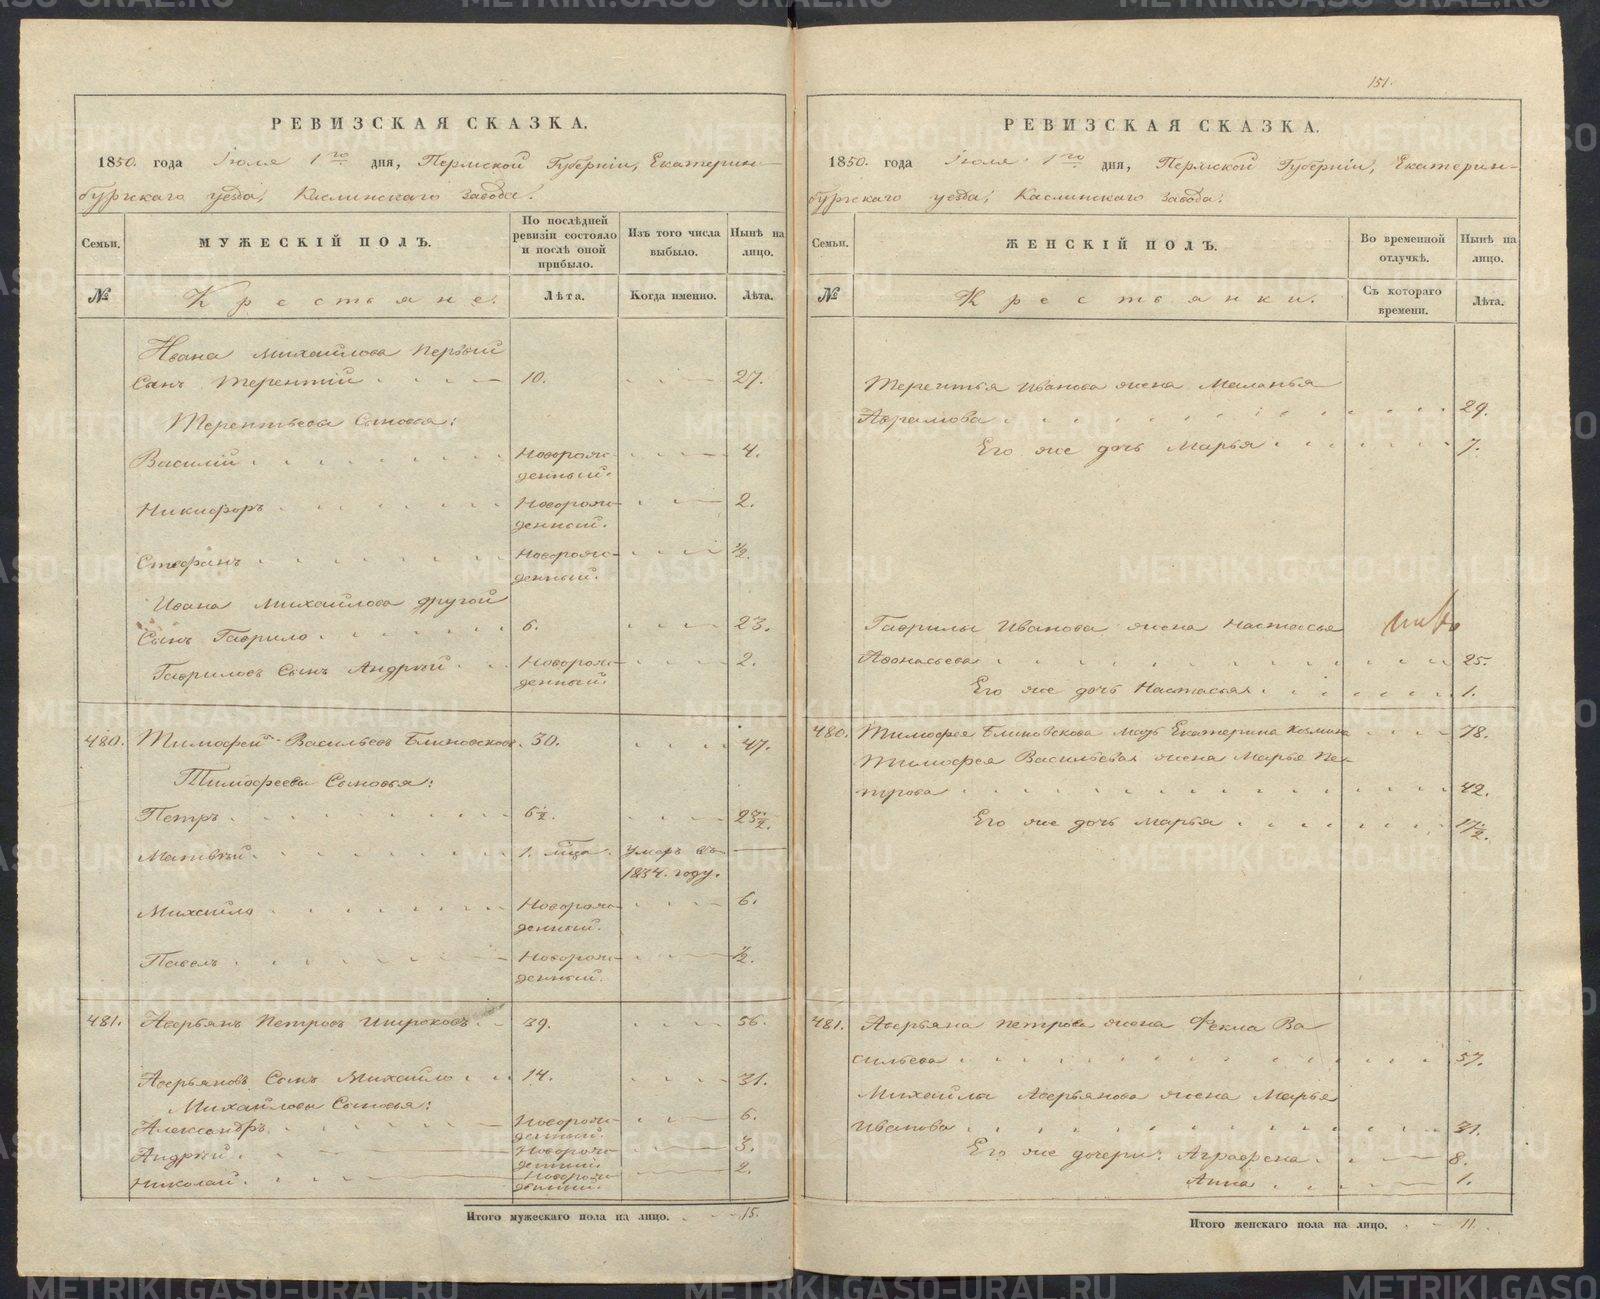 151.
РЕВИЗСКАЯ СКАЗКА.
1850. года Іюля 1го дня, Пермской Губерніи, Екатерин-
бургскаго уезда, Каслинскаго завода.
Семьи.
МУЖЕСКІЙ ПОЛЪ.
По послѣдней ревизіи состояло и послѣ оной прибыло.
Изъ того числа выбыло.
Нынѣ на лицо.
№
Крестьяне.
Лѣта.
Когда именно.
Лѣта.
Ивана Михайлова первый
Сынъ Терентій 10. 27.
Терентьевы Сыновья:
Василій Новорож- 4.
денный.
Никифоръ Новорож- 2.
денный.
Стефанъ Новорож- ½.
денный.
Ивана Михайлова другой
Сынъ Гаврило 6. 23.
Гавриловъ Сынъ Андрей Новорож- 2.
денный.
480. Тимофей Васильевъ Блиновсковъ. 30. 47.
Тимофеевы Сыновья:
Петръ 6½. 23½.
Матвѣй 1. мца. умеръ въ
1834. году.
Михайло Новорож- 6.
денный.
Павелъ Новорож- ½.
денный.
481. Аверьянъ Петровъ Широковъ 39. 56.
Аверьяновъ Сынъ Михайло 14. 31.
Михайловы Сыновья:
Александръ Новорож- 6.
денный.
Андрей Новорож- 3.
денный.
Николай Новорож- 2.
денный.
Итого мужескаго пола на лицо. 15.
РЕВИЗСКАЯ СКАЗКА.
1850. года Іюля 1го дня, Пермской Губерніи, Екатерин-
бургскаго уезда, Каслинскаго завода.
Семьи.
ЖЕНСКІЙ ПОЛЪ.
Во временной отлучкѣ.
Нынѣ на лицо.
№
Крестьянки.
Съ котораго времени.
Лѣта.
Терентья Иванова жена Маланья
Аврамова 29.
Его же дочь Марья 7.
Гаврилы Иванова жена Настасья
Афонасьева 25.
Его же дочь Настасья 1.
480. Тимофея Блиновскова мать Екатерина Козмина 78.
Тимофея Васильева жена Марья Пе-
трова 42.
Его же дочь Марья 17½.
481. Аверьяна Петрова жена Фекла Ва
сильева 57.
Михайлы Аверьянова жена Марья
Иванова 31.
Его же дочери: Аграфена 8.
Анна 1.
Итого женскаго пола на лицо. 11.
METRIKI.GASO-URAL.RU